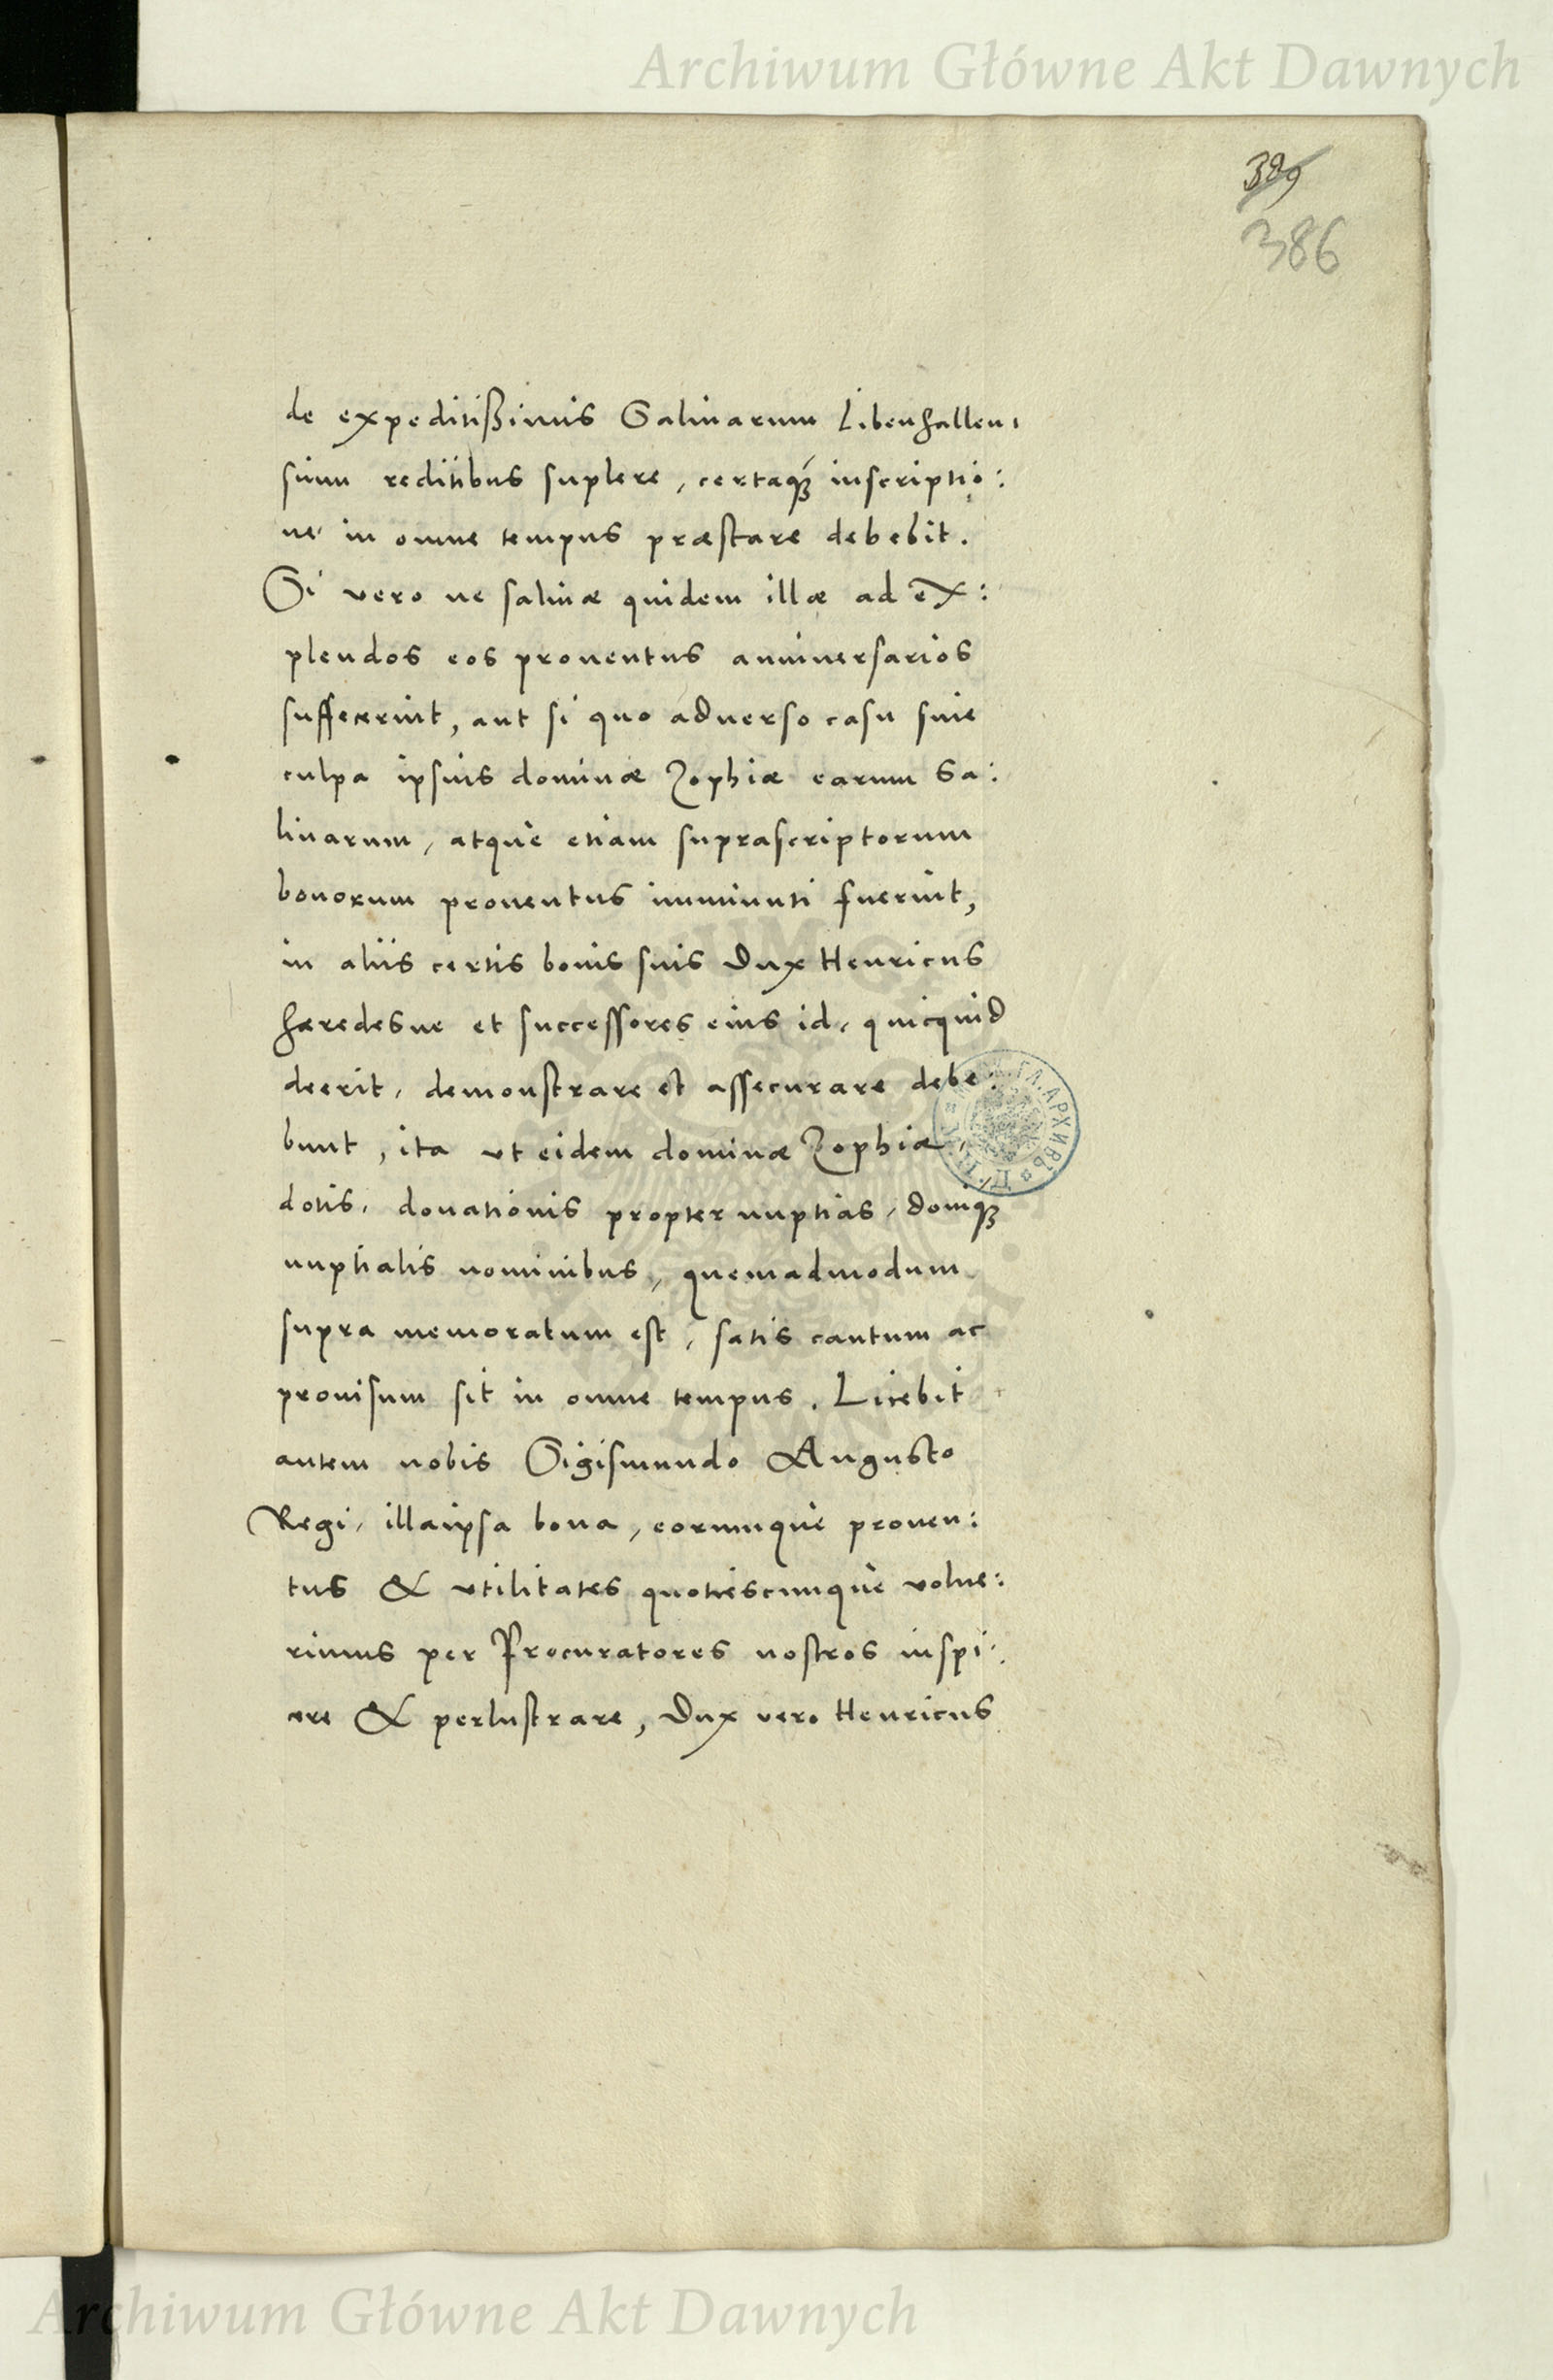 Archiwum Główne Akt Dawnych
389
386
de expeditißimis Salinarum Libenhallen:
sium reditibus suplere, certaq́ꝫ inscriptio:
ne in omne tempus præstare debebit.
Si vero ne salinæ quidem illæ ad ex:
plendos eos prouentus anniuersarios
suffecerint, aut si quo aduerso casu sine
culpa ipsius dominæ Zophiæ earum Sa:
linarum, atque etiam suprascriptorum
bonorum prouentus imminuti fuerint,
in aliis certis bonis suis Dux Henricus
hæredesue et successores eius id, quicquid
deerit, demonstrare et assecurare debe:
bunt, ita vt eidem dominæ Zophiæ,
dotis, donationis propter nuptias, doniqꝫ
nuptialis nominibus, quemadmodum
supra memoratum est, satis cautum ac
prouisum sit in omne tempus. Licebit
autem nobis Sigismundo Augusto
Regi, illa ipsa bona, eorumque prouen:
tus & vtilitates quotiescunque volue:
rimus per Procuratores nostros inspi:
cere & perlustrare, Dux vero Henricus
Archiwum Główne Akt Dawnych